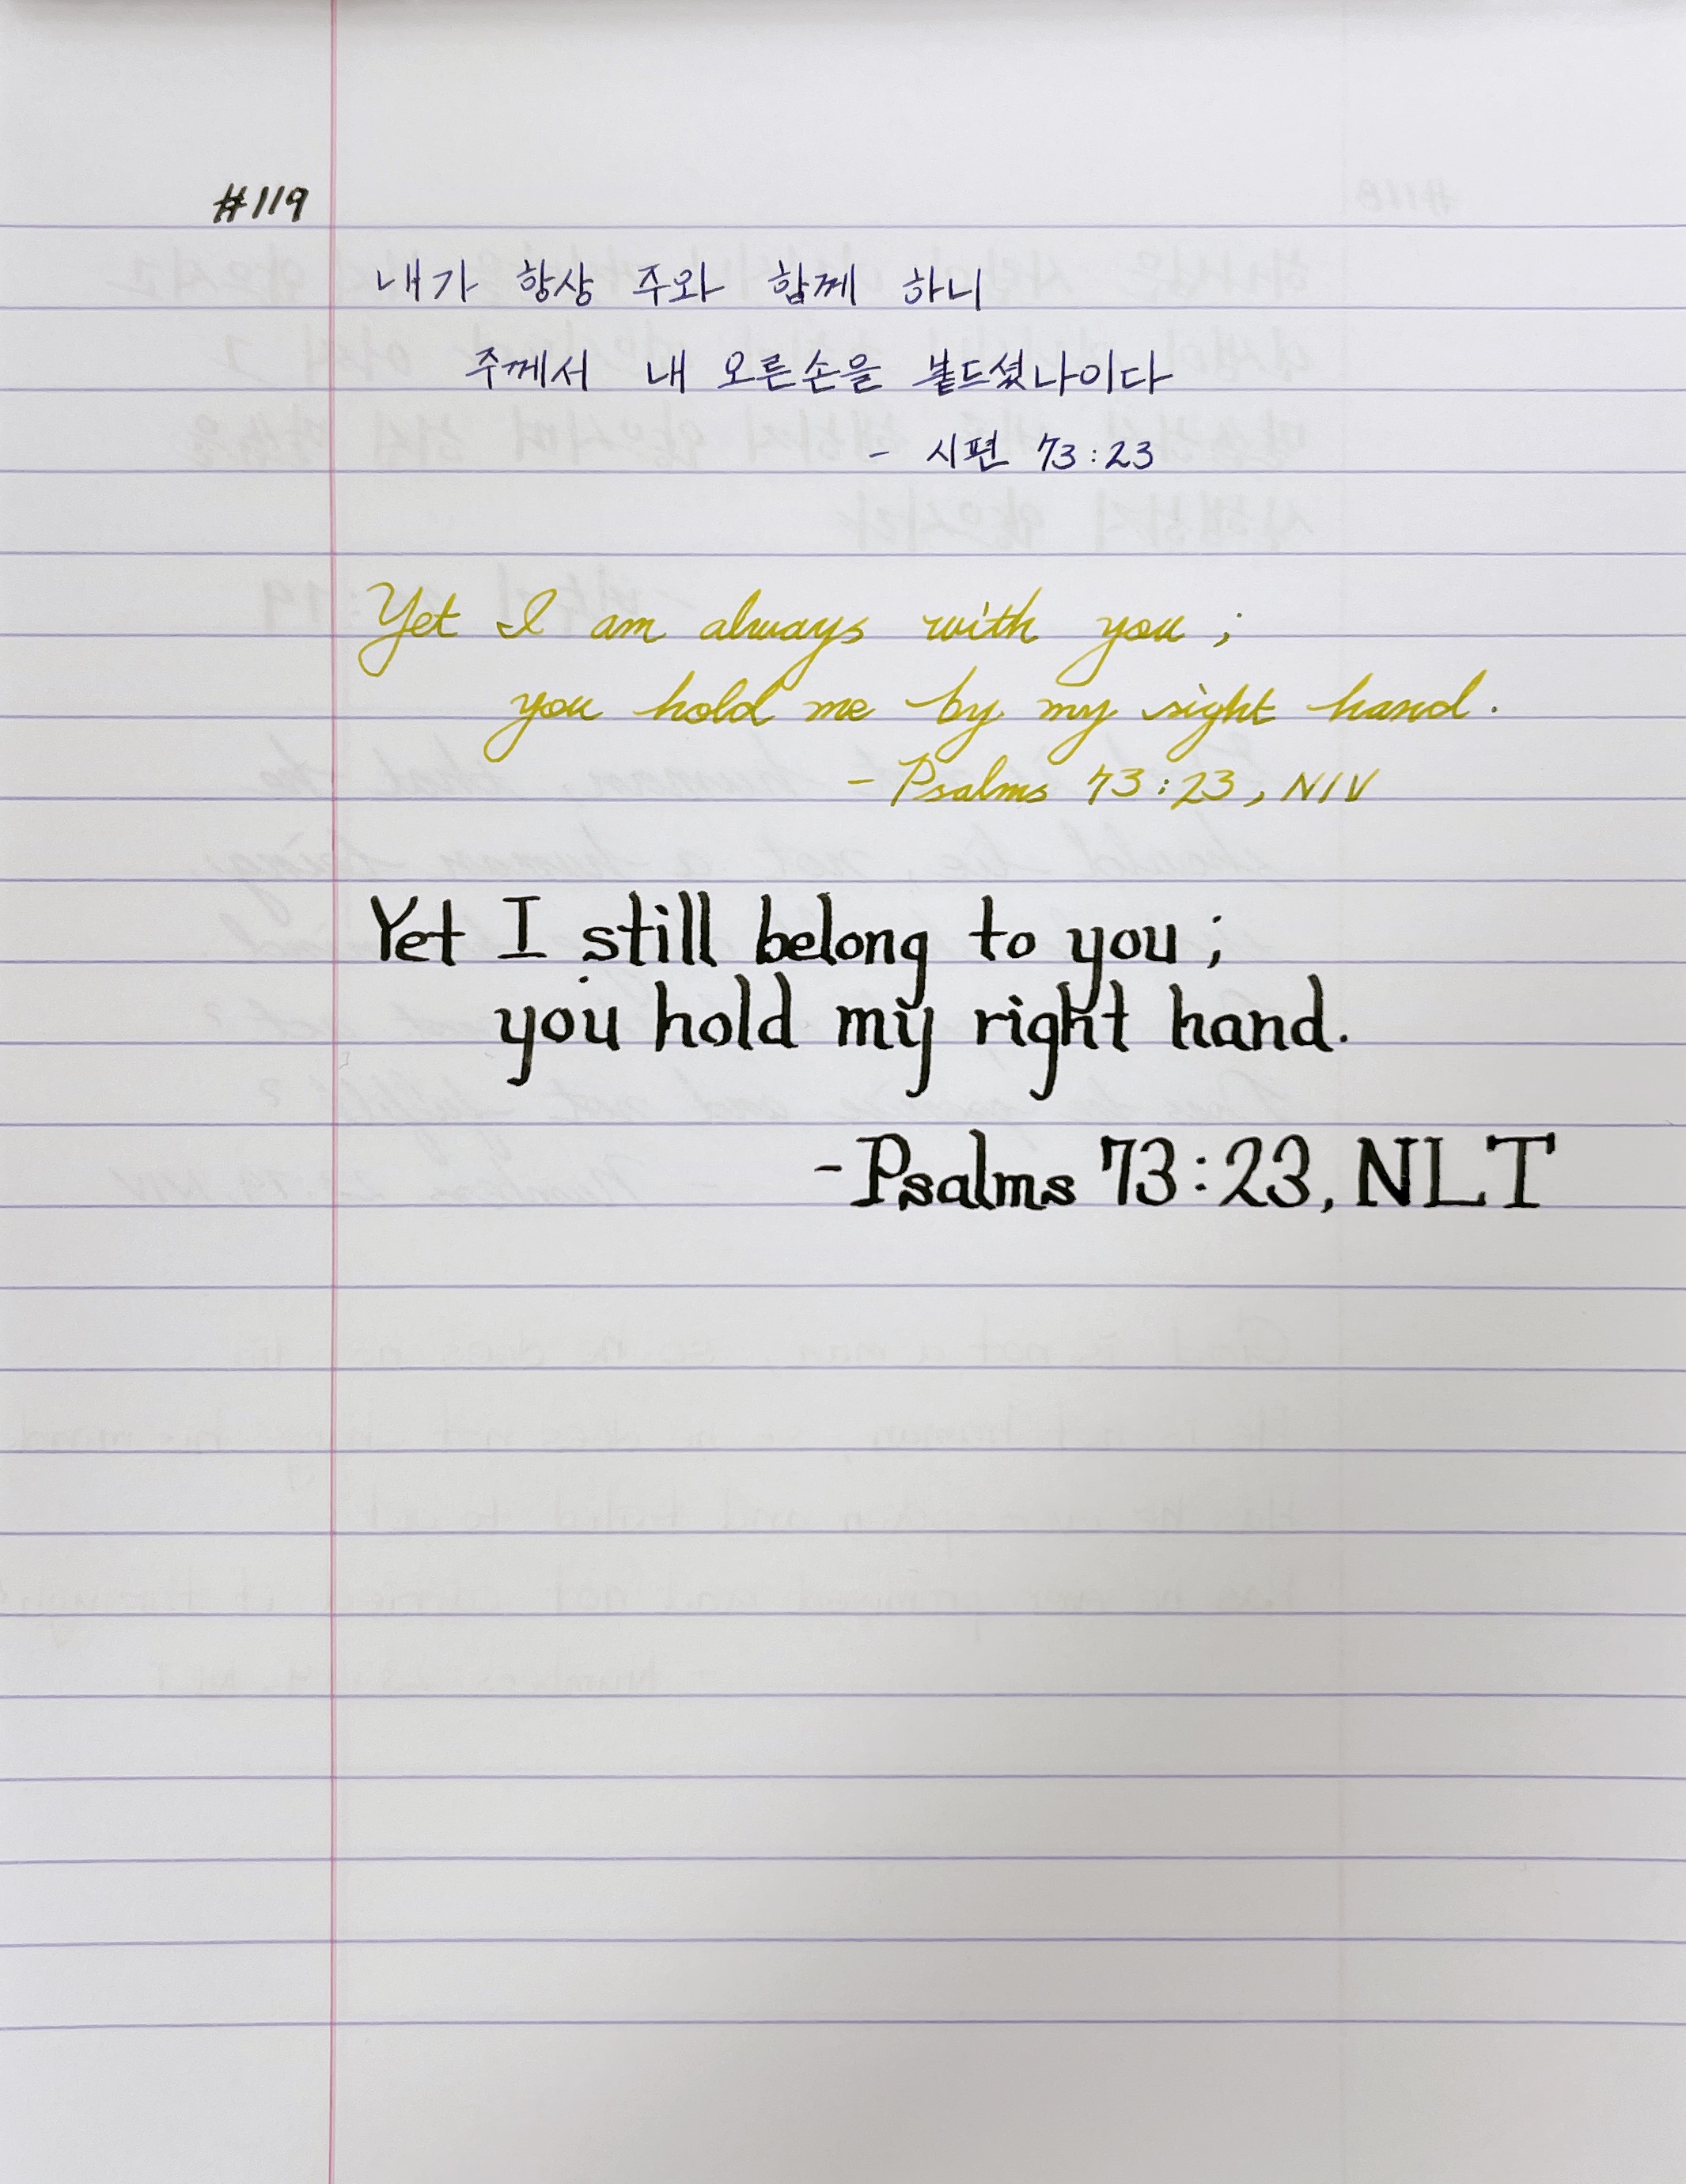 #119
내가 항상 주와 함께 하니
주께서 내 오른손을 붙드셨나이다
- 시편 73:23
Yet I am always with you;
you hold me by my right hand.
- Psalms 73:23, NIV
Yet I still belong to you;
you hold my right hand.
- Psalms 73:23, NLT